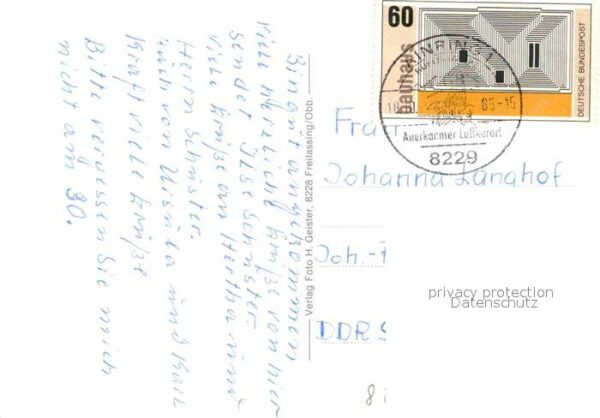 Sind angekommen
viele herzliche Grüße von hier
sendet Ilse Schuster.
Viele Grüße an Hertha und
Herrn Schuster.
Auch von Ursula und Karl
Kraft viele Grüße
Bitte vergessen Sie mich
nicht am 30.
Verlag Foto H. Geister, 8228 Freilassing/Obb.
60
bauhaus
DEUTSCHE BUNDESPOST
85-15
Anerkannter Luftkurort
8229
Frau
Johanna Langhof
Joh.-
DDR
8
privacy protection
Datenschutz